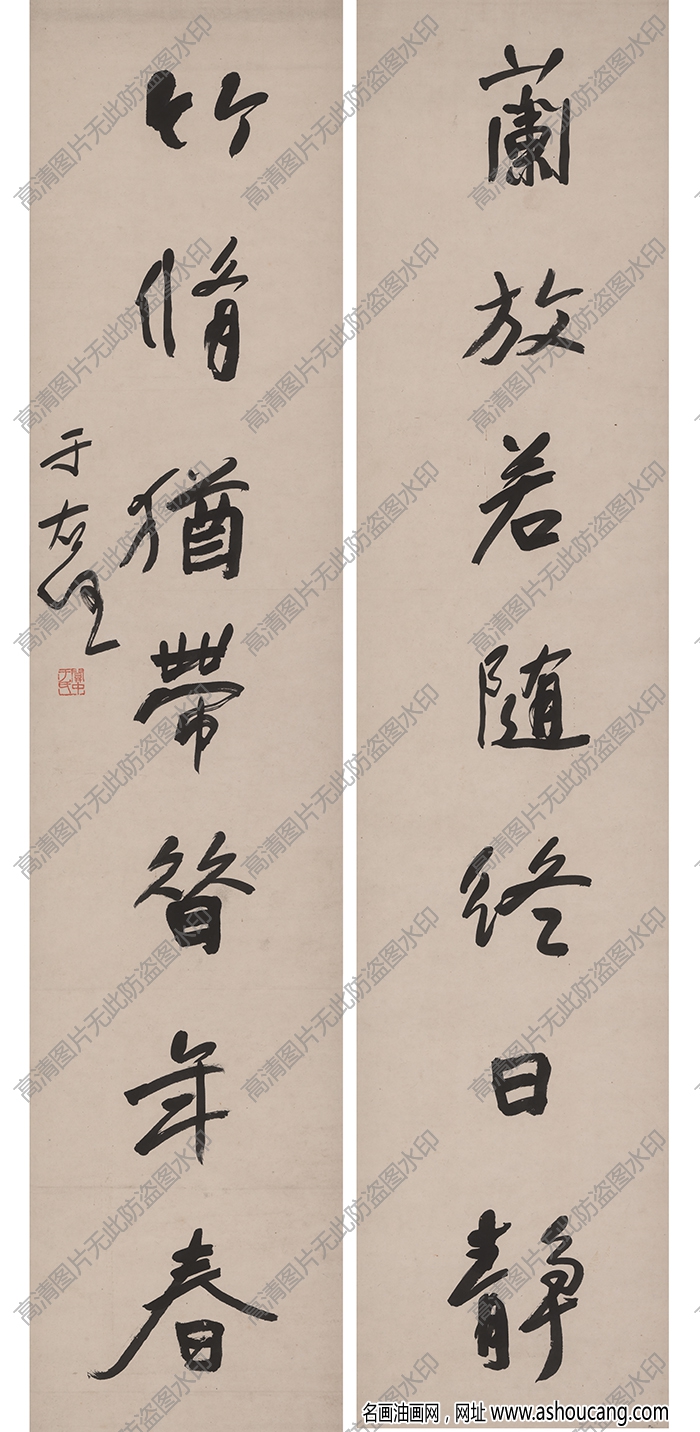 蘭放若随終日靜
竹脩猶帶昔年春
于右任
關中于氏
高清图片无此防盗图水印
名画油画网，网址 www.ashoucang.com